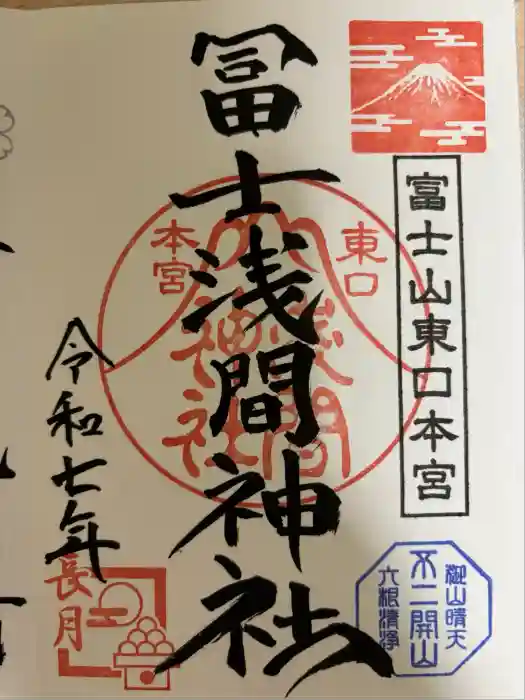 富士山東口本宮
冨士浅間神社
東口
本宮
浅間
神社
令和七年
長月
御山晴天
不二開山
六根清浄